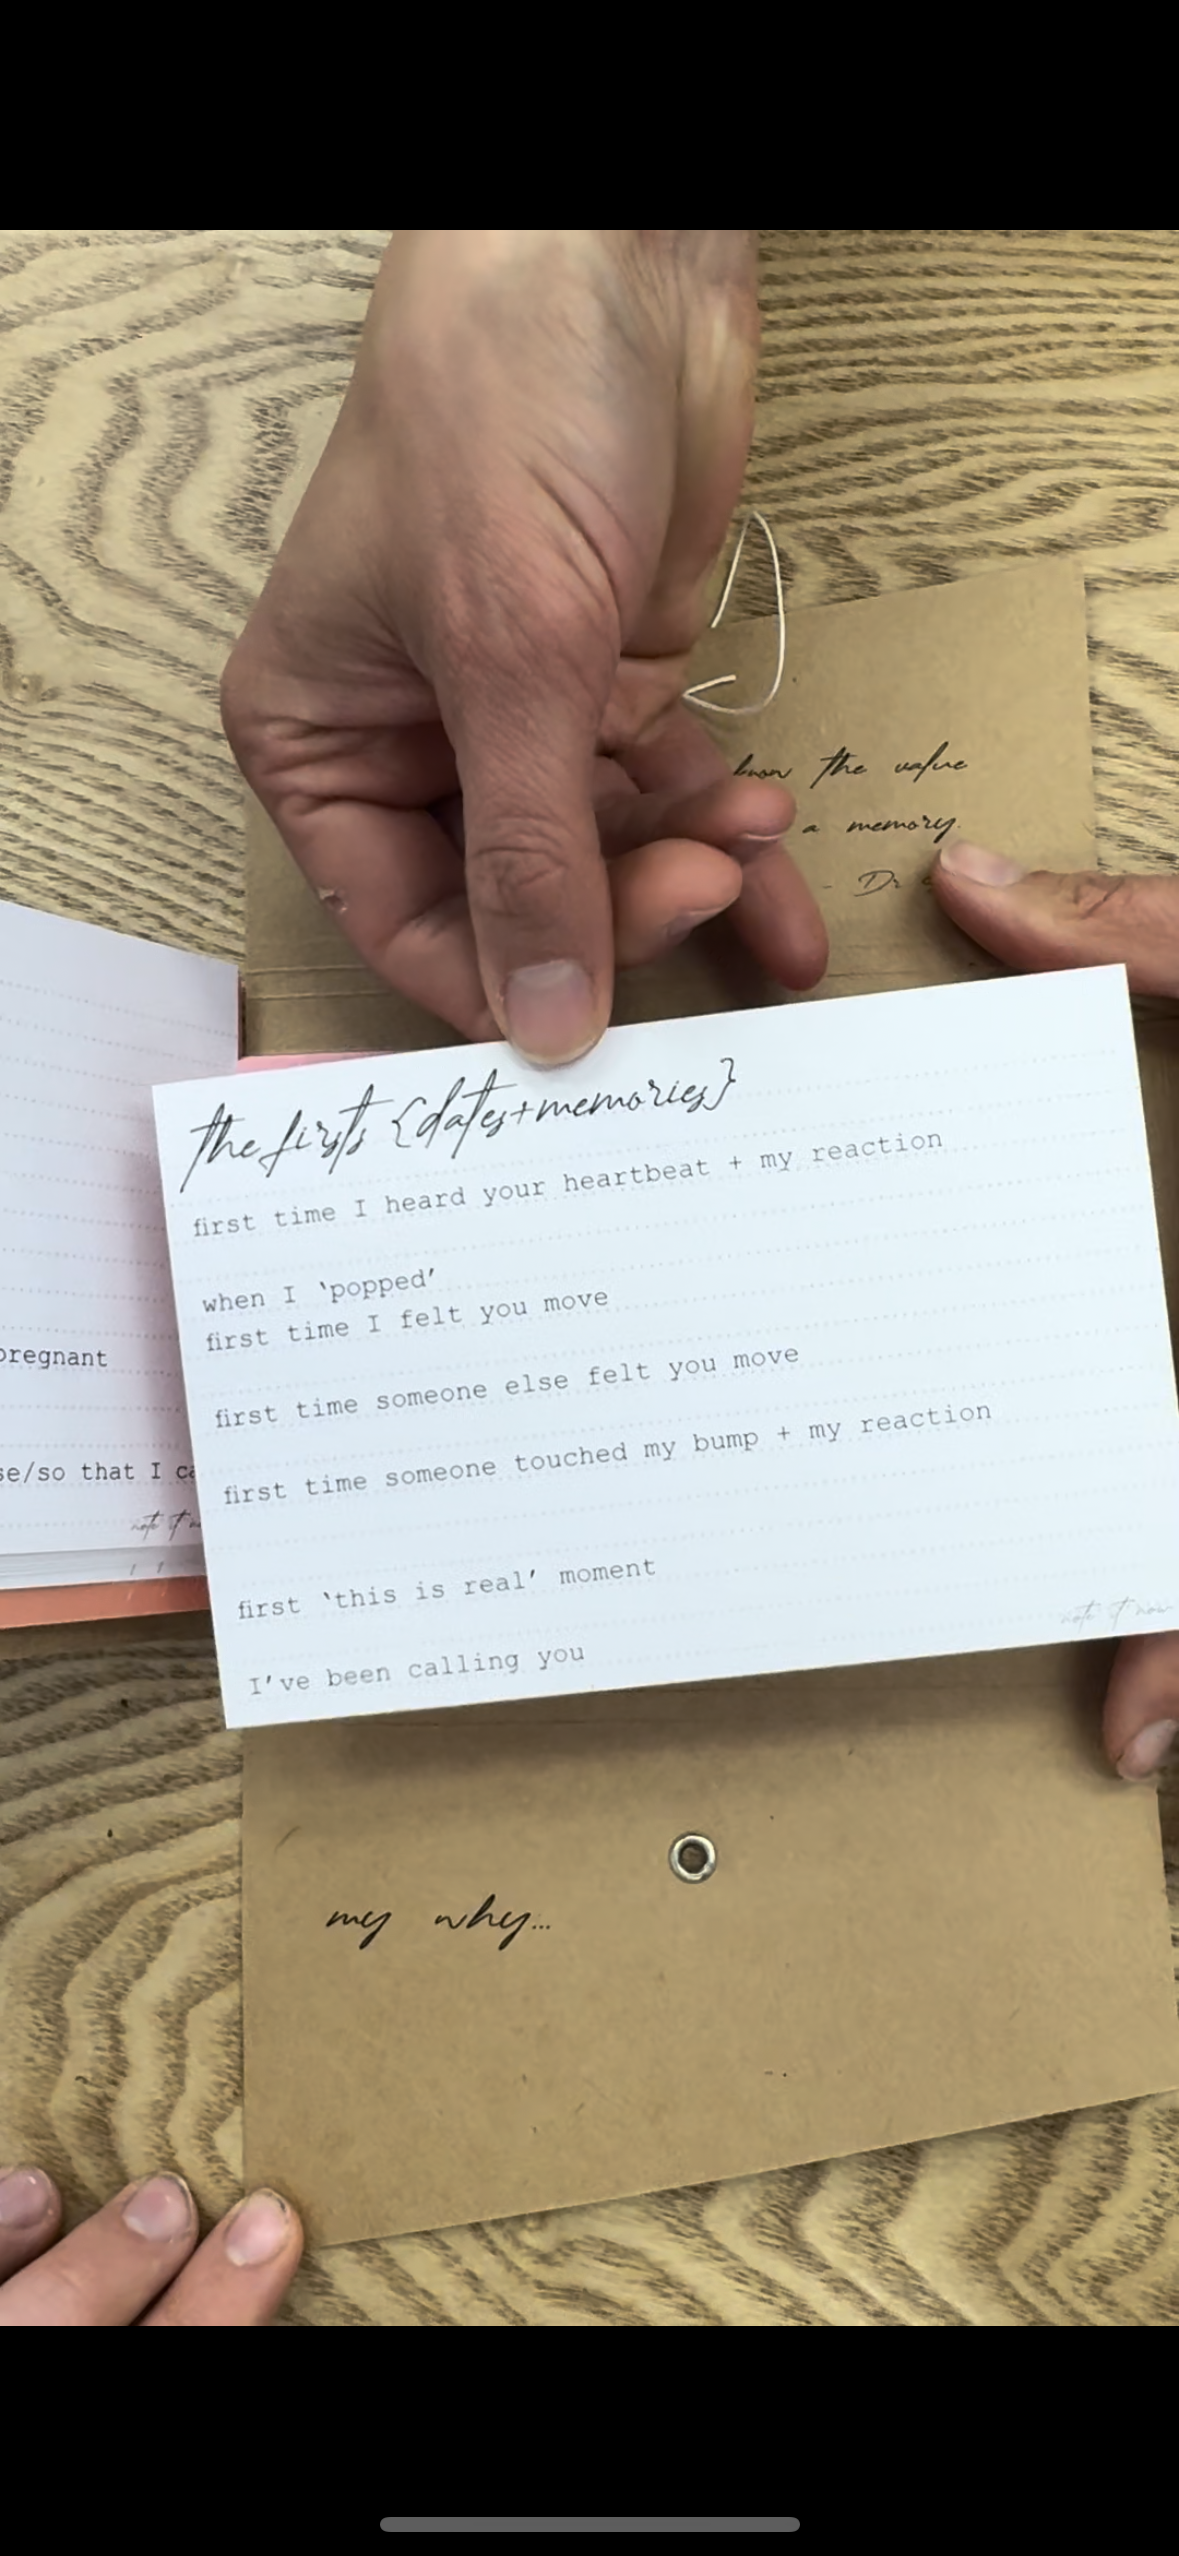 know the value
a memory.
- Dr
the firsts {dates+memories}
first time I heard your heartbeat + my reaction
when I ‘popped’
first time I felt you move
first time someone else felt you move
first time someone touched my bump + my reaction
first ‘this is real’ moment
I’ve been calling you
note it now
pregnant
se/so that I ca
note it
my why...